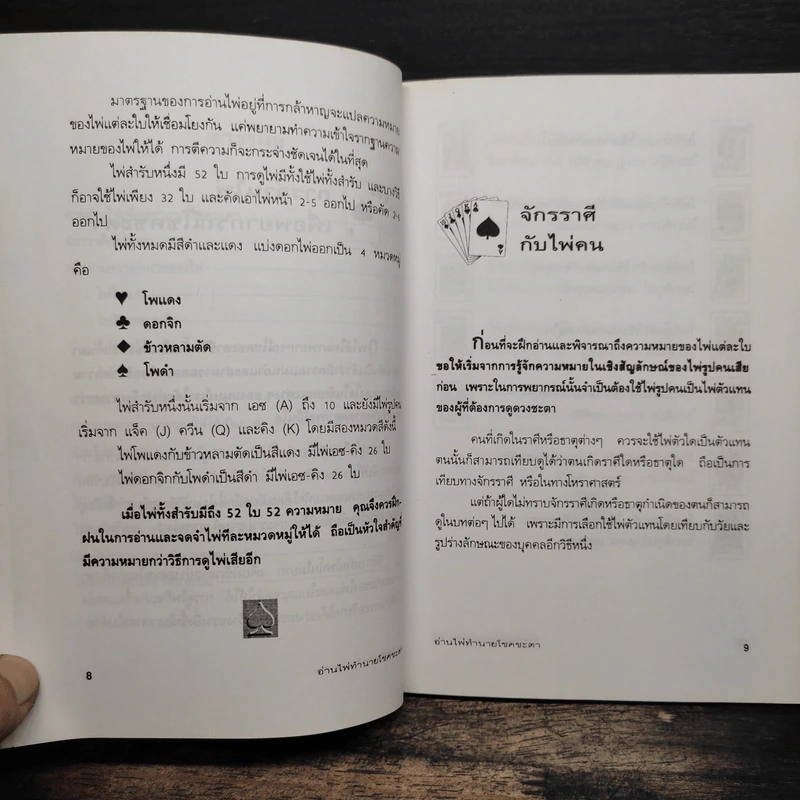 มาตรฐานของการอ่านไพ่อยู่ที่การกล้าหาญจะแปลความหมาย
ของไพ่แต่ละใบให้เชื่อมโยงกัน แค่พยายามทำความเข้าใจรากฐานความ
หมายของไพ่ให้ได้ การตีความก็จะกระจ่างชัดเจนได้ในที่สุด
ไพ่สำรับหนึ่งมี 52 ใบ การดูไพ่มีทั้งใช้ไพ่ทั้งสำรับ และบางวิธี
ก็อาจใช้ไพ่เพียง 32 ใบ และคัดเอาไพ่หน้า 2-5 ออกไป หรือคัด 2-6
ออกไป
ไพ่ทั้งหมดมีสีดำและแดง แบ่งดอกไพ่ออกเป็น 4 หมวดหมู่
คือ
♥ โพแดง
♣ ดอกจิก
♦ ข้าวหลามตัด
♠ โพดำ
ไพ่สำรับหนึ่งนั้นเริ่มจาก เอซ (A) ถึง 10 และยังมีไพ่รูปคน
เริ่มจาก แจ็ค (J) ควีน (Q) และคิง (K) โดยมีสองหมวดสีดังนี้
ไพ่โพแดงกับข้าวหลามตัดเป็นสีแดง มีไพ่เอซ-คิง 26 ใบ
ไพ่ดอกจิกกับโพดำเป็นสีดำ มีไพ่เอซ-คิง 26 ใบ
เมื่อไพ่ทั้งสำรับมีถึง 52 ใบ 52 ความหมาย คุณจึงควรฝึก-
ฝนในการอ่านและจดจำไพ่ทีละหมวดหมู่ให้ได้ ถือเป็นหัวใจสำคัญที่
มีความหมายกว่าวิธีการดูไพ่เสียอีก
8
อ่านไพ่ทำนายโชคชะตา
จักรราศี
กับไพ่คน
ก่อนที่จะฝึกอ่านและพิจารณาถึงความหมายของไพ่แต่ละใบ
ขอให้เริ่มจากการรู้จักความหมายในเชิงสัญลักษณ์ของไพ่รูปคนเสีย
ก่อน เพราะในการพยากรณ์นั้นจำเป็นต้องใช้ไพ่รูปคนเป็นไพ่ตัวแทน
ของผู้ที่ต้องการดูดวงชะตา
คนที่เกิดในราศีหรือธาตุต่างๆ ควรจะใช้ไพ่ตัวใดเป็นตัวแทน
ตนนั้นก็สามารถเทียบดูได้ว่าตนเกิดราศีใดหรือธาตุใด ถือเป็นการ
เทียบทางจักรราศี หรือในทางโหราศาสตร์
แต่ถ้าผู้ใดไม่ทราบจักรราศีเกิดหรือธาตุกำเนิดของตนก็สามารถ
ดูในบทต่อๆ ไปได้ เพราะมีการเลือกใช้ไพ่ตัวแทนโดยเทียบกับวัยและ
รูปร่างลักษณะของบุคคลอีกวิธีหนึ่ง
อ่านไพ่ทำนายโชคชะตา
9